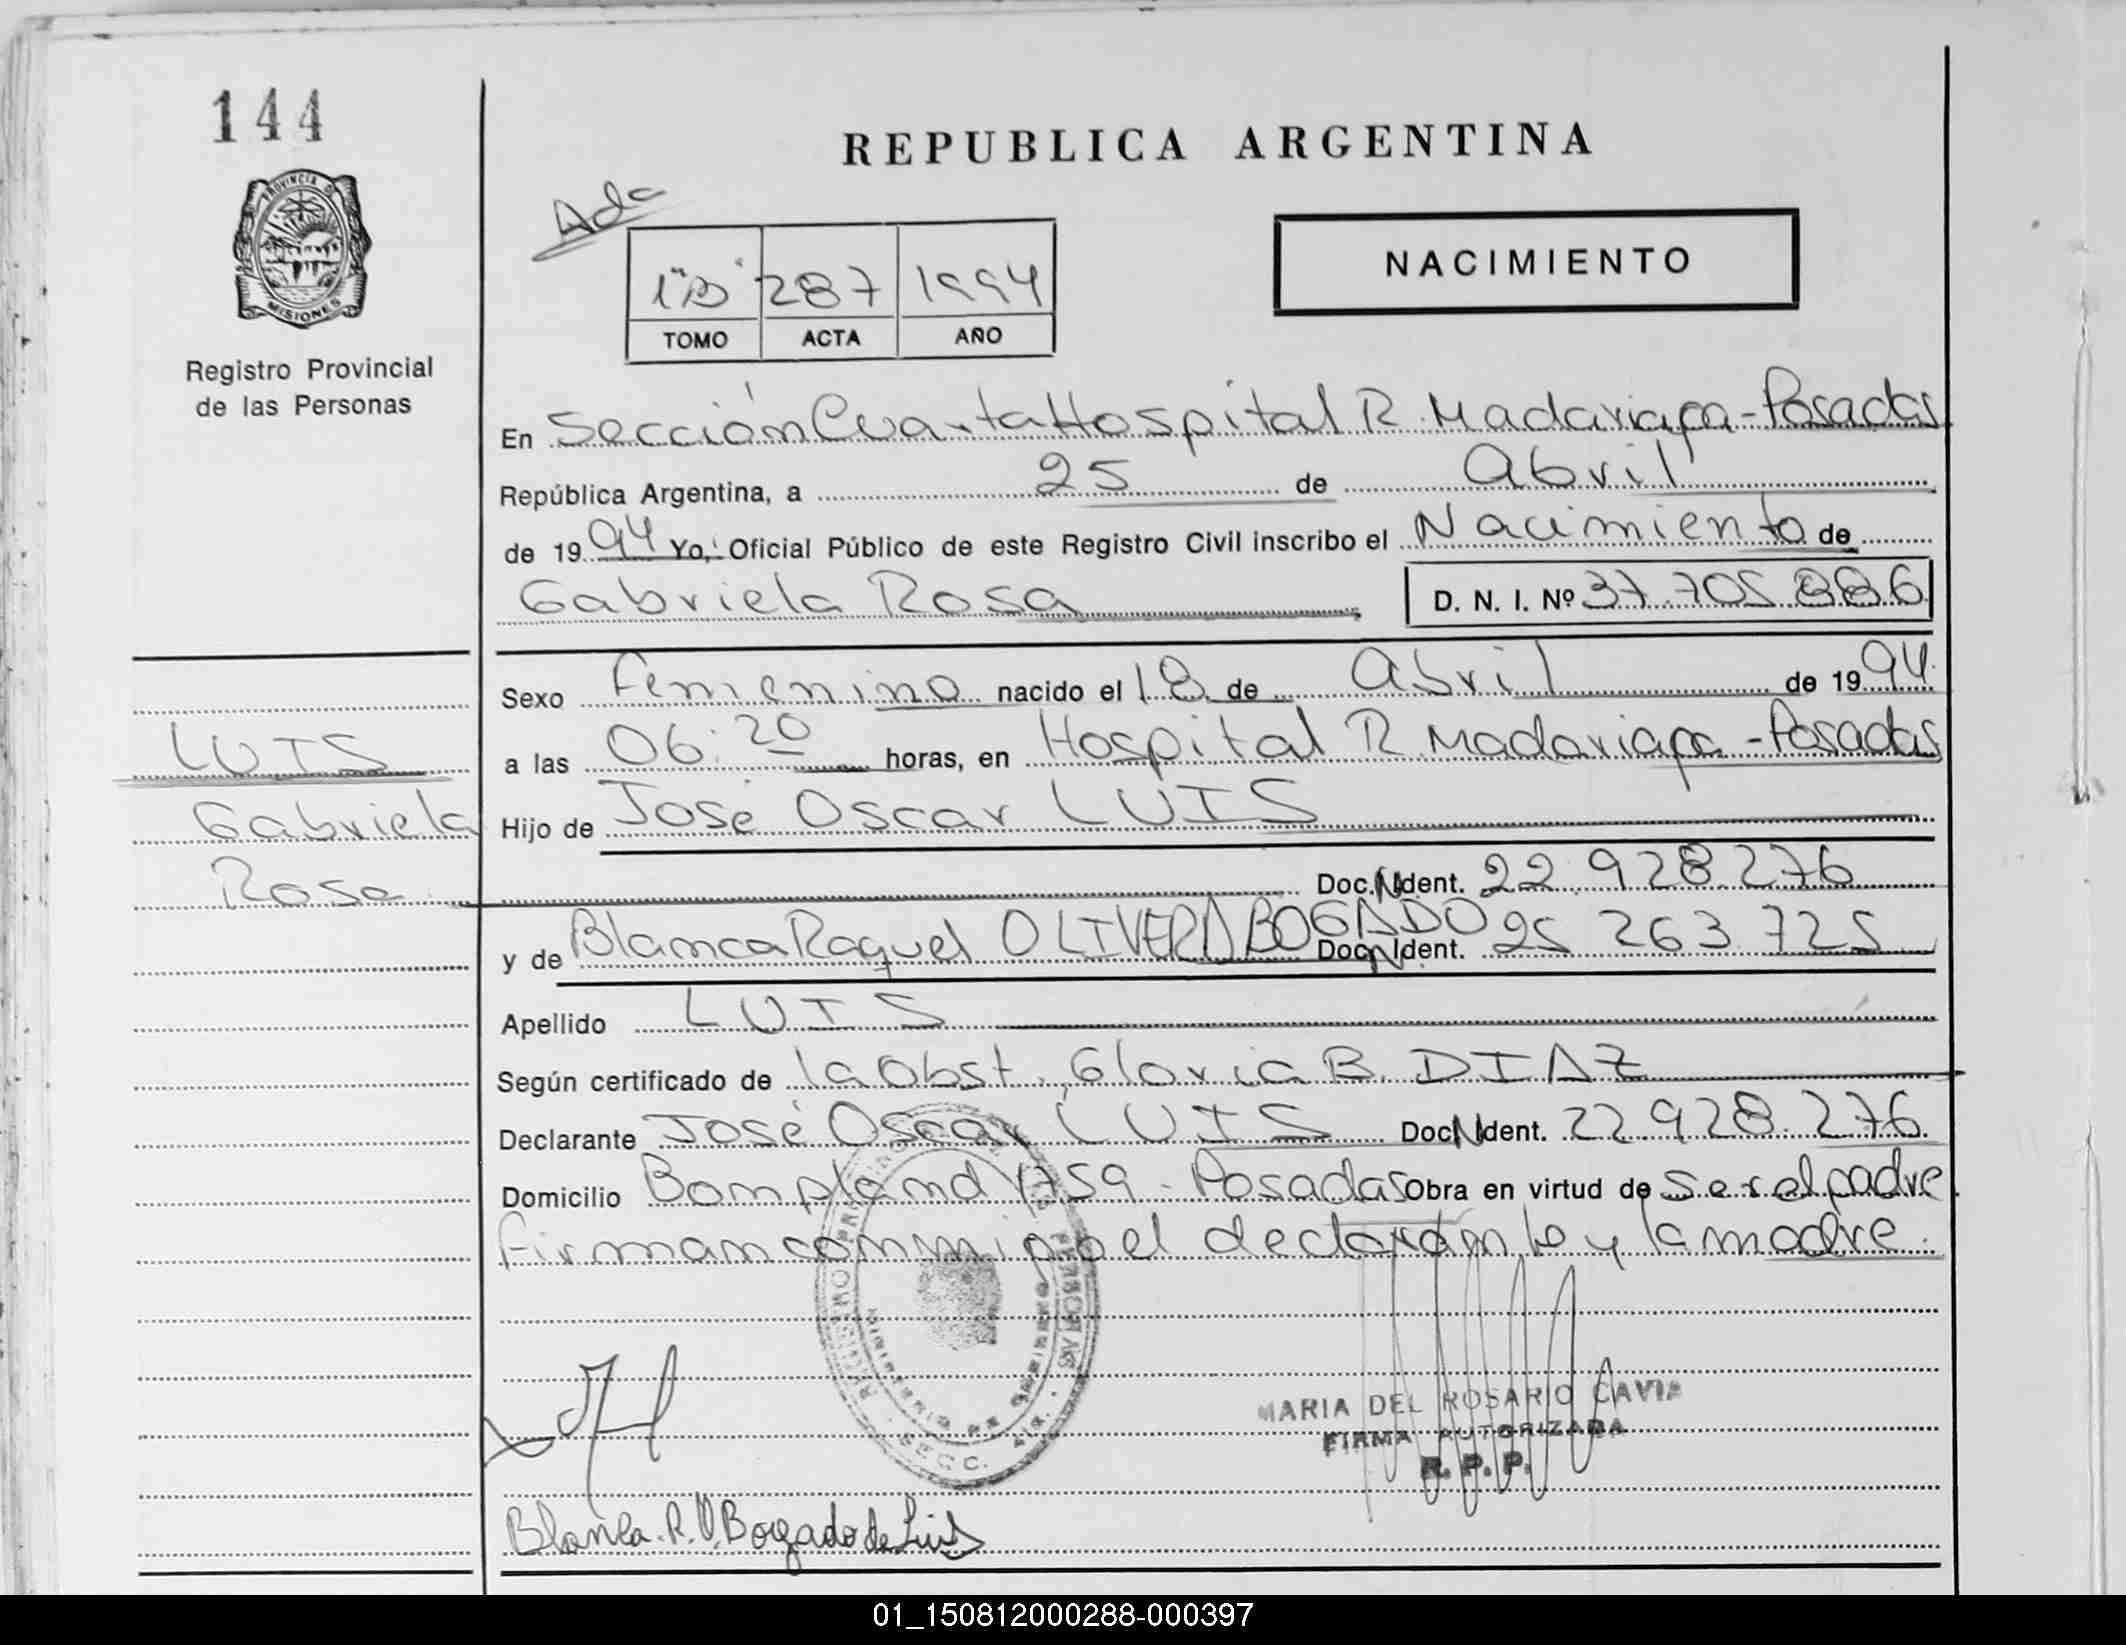 144
PROVINCIA DE
MISIONES
Registro Provincial
de las Personas
REPUBLICA ARGENTINA
Ada
1"B" 287 1994
TOMO ACTA AÑO
NACIMIENTO
En Sección Cuarta Hospital R. Madariaga - Posadas
República Argentina, a 25 de Abril
de 1994 Yo, Oficial Público de este Registro Civil inscribo el Nacimiento de
Gabriela Rosa D. N. I. Nº 37.705.886
Sexo Femenino nacido el 18 de Abril de 1994
a las 06:20 horas, en Hospital R. Madariaga - Posadas
Hijo de José Oscar LUIS
Doc. N Ident. 22.928.276
y de Blanca Raquel OLIVERA BOGADO Doc. N Ident. 25.263.725
Apellido LUIS
Según certificado de la Obst. Gloria B. DIAZ
Declarante José Oscar LUIS Doc. N Ident. 22.928.276
Domicilio Bompland 1759 - Posadas Obra en virtud de ser el padre
Firman conmigo el declarante y la madre.
LUIS
Gabriela
Rosa
MARIA DEL ROSARIO CAVIA
FIRMA AUTORIZADA
R. P. P.
Blanca. R. O. Bogado de Luis
01_150812000288-000397